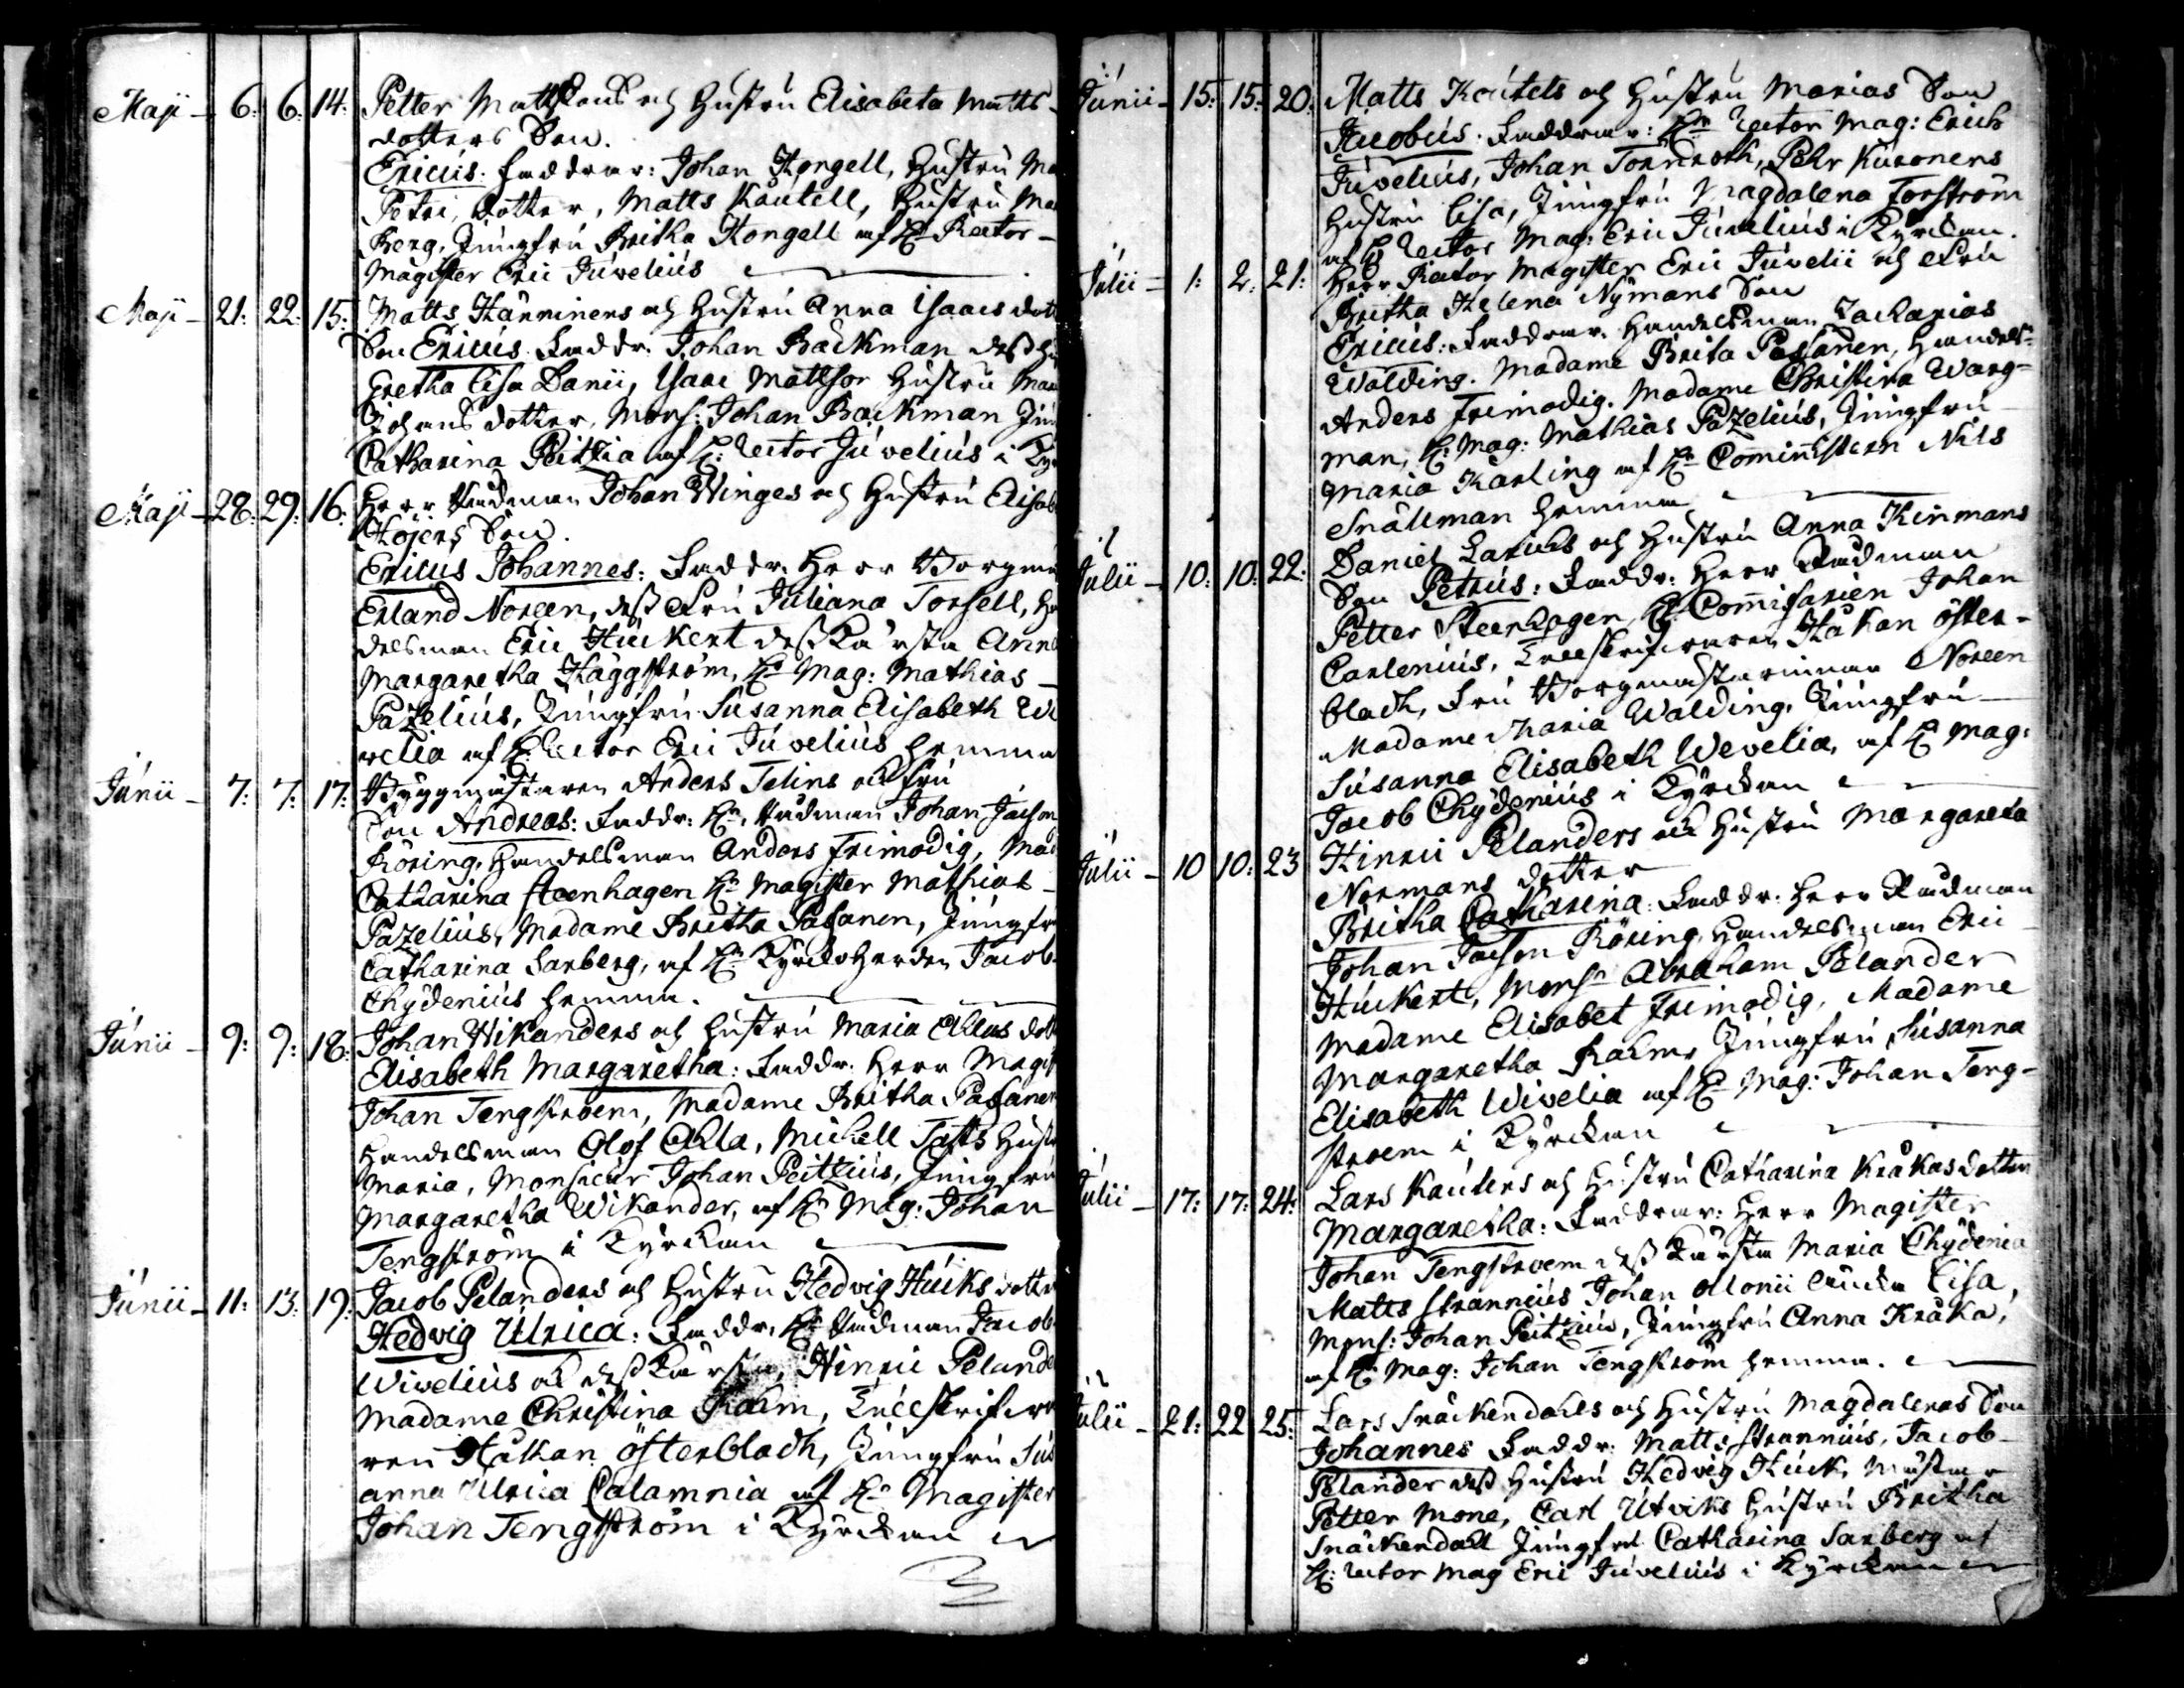 Maji - 6: 6: 14: Petter Mattssons och Hustru Elisabeta Matts-
dotters Son.
Ericus. faddrar: Johan Kongell, Hustru Ma
Petri dotter, Matts Kautell, Hustru Ma
Berg, Jungfru Britha Kongell af Hr Rector
Magister Eric Juvelius
Maji - 21: 22: 15: Matts Hänninens och Hustru Anna Isaacs dott
Son Ericus. Faddr. Johan Backman dess Hu
Gretha Lisa Danii, Isaac Mattson Hustru Ma
Johans dotter, Mons: Johan Backman Jun
Catharina Peitzia af H: Rector Juvelius i Kyr
Maji - 28: 29: 16: Herr Rådman Johan Winges och Hustru Elisab
Höjers Son.
Ericus Johannes: Faddr. Herr Borgmä
Erland Noreen, dess Fru Juliana Torsell, Ha
delsman Eric Huckert dess Kärsta Anna
Margaretha Häggström, Hr Mag: Mathias
Pazelius, Jungfru Susanna Elisabeth We
velia af H: Rector Eric Juvelius hemma
Junii - 7: 7: 17: Byggmästaren Anders Telins och fru
Son Andreas: Faddr: Hr Rådman Johan Jacson
Röring, Handelsman Anders Frimodig, Mad
Catharina Steenhagen Hr Magister Mathias
Pazelius, Madame Britha Pasanen, Jungfru
Catharina Sarberg, af Hr Kyrckoherden Jacob
Chydenius hemma.
Junii - 9: 9: 18: Johan Wikanders och Hustru Maria Ahlas dott
Elisabeth Margaretha: Faddr. Herr Magist
Johan Tengstroem, Madame Britha Pasanen
Handelsman Olof Ahla, Michell Tasts Hustru
Maria, Monsieur Johan Peitzius, Jungfru
Margaretha Wikander, af Hr Mag: Johan
Tengström i Kyrckan
Junii - 11: 13: 19: Jacob Pelanders och Hustru Hedvig Hucks dotter
Hedvig Ulrica: Faddr. Hr Rådman Jacob
Wivelius och dess Kärsta, Hinric Pelande
Madame Christina Kalm, Tullskrifwa
ren Håkan Österbladh, Jungfru Sus
anna Ulrica Calamnia af Hr Magister
Johan Tengström i Kyrckan
Junii - 15: 15: 20: Matts Kautels och Hustru Marias Son
Jacobus. Faddrar: Hr Rector Mag: Erich
Juvelius, Johan Tornroth, Pehr Kuronens
Hustru Lisa, Jungfru Magdalena Forström
af H Rector Mag: Eric Juvelius i Kyrckan.
Julii - 1: 2: 21: Herr Rector Magister Eric Juvelii och Fru
Britha Helena Nymans Son
Ericus: Faddrar. Handelsman Zacharias
Walding. Madame Brita Pasanen, Handels=
Anders Frimodig. Madame Christina Warg=
man, H: Mag: Mathias Pazelius, Jungfru
Maria Karling af Hr Comministern Nils
Snällman hemma
Julii - 10: 10: 22: Daniel Larichs och Hustru Anna Kinmans
Son Petrus: Faddr: Herr Rådman
Petter Steenhagen, H: Commisarien Johan
Carlenius, Tullskrifwaren Håkan Öster-
bladh, Fru Borgmästarinnan Noreen
Madame Maria Walding, Jungfru
Susanna Elisabeth Wevelia, af Hr Mag:
Jacob Chydenius i Kyrckan
Julii - 10 10: 23 Hinric Pelanders och Hustru Margareta
Normans dotter
Britha Catharina: Faddr. Herr Rådman
Johan Jacson Röring, Handelsman Eric
Huckert, Monsr Abraham Pelander
Madame Elisabet Frimodig, Madame
Margaretha Kalm, Jungfru Susanna
Elisabeth Wivelia af Hr Mag: Johan Teng-
stroem i Kyrckan
Julii - 17: 17: 24: Lars Kauters och Hustru Catharina Kråkas dotter
Margaretha: Faddrar: Herr Magister
Johan Tengstroem dess Kärsta Maria Chydenia
Matts Strannius Johan Monii Enka Lisa,
Mons: Johan Peitzius, Jungfru Anna Kråka,
af H: Mag: Johan Tengström hemma.
Julii - 21: 22 25: Lars Snäckendahls och Hustru Magdalenas Son
Johannes Faddr. Matts Strannius, Jacob
Pelander dess Hustru Hedvig Huck, Mästar
Petter Mone, Carl Utviks Hustru Britha
Snäckendahl Jungfru Catharina Sarberg af
H: Rector Mag Eric Juvelius i Kyrckan